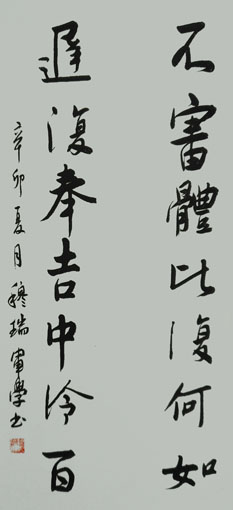 不審體比復何如
遲復奉告中冷百
辛卯夏月穆瑞軍學書